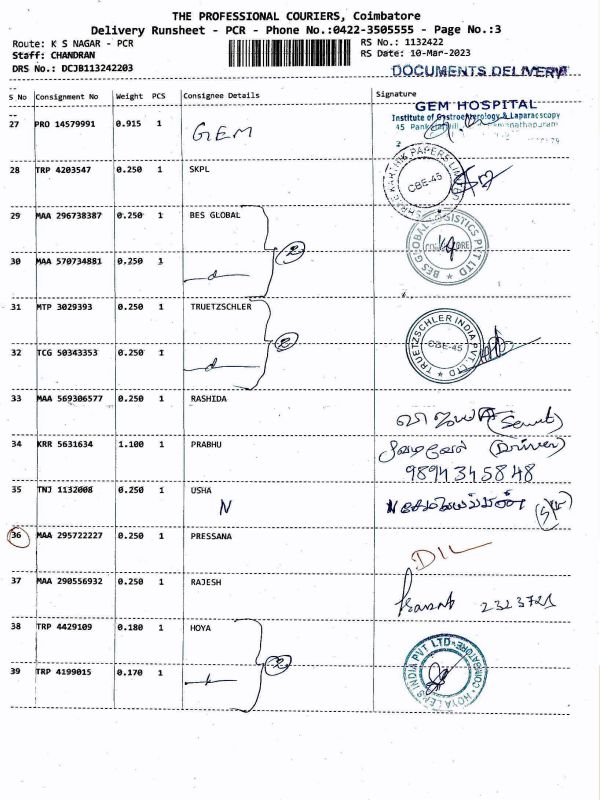 THE PROFESSIONAL COURIERS, Coimbatore
Delivery Runsheet - PCR - Phone No.:0422-3505555 - Page No.:3
Route: K S NAGAR - PCR
RS No.: 1132422
Staff: CHANDRAN
RS Date: 10-Mar-2023
DRS No.: DCJB113242203
DOCUMENTS DELIVERY
S No Consignment No Weight PCS Consignee Details Signature
GEM HOSPITAL
Institute of Gastroenterology & Laparascopy
27 PRO 14579991 0.915 1 GEM
28 TRP 4203547 0.250 1 SKPL
CBE-45
29 MAA 296738387 0.250 1 BES GLOBAL
BES GLOBAL LOGISTICS PVT LTD
30 MAA 570734881 0.250 1
2
31 MTP 3029393 0.250 1 TRUETZSCHLER
TRUETZSCHLER INDIA PVT. LTD
CBE-45
32 TCG 50343353 0.250 1
2
33 MAA 569306577 0.250 1 RASHIDA
34 KRR 5631634 1.100 1 PRABHU (Driver)
9894345848
35 TNJ 1132008 0.250 1 USHA
N
36 MAA 295722227 0.250 1 PRESSANA
D I L
37 MAA 290556932 0.250 1 RAJESH
2323721
38 TRP 4429109 0.180 1 HOYA
HOYA LENS INDIA PVT LTD COIMBATORE
39 TRP 4199015 0.170 1
2